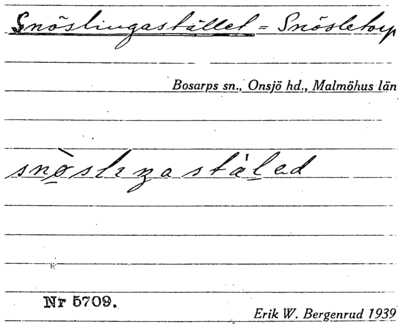 Snöslingastället = Snösletorp
Bosarps sn., Onsjö hd., Malmöhus län
snòslıŋastàled
Nr 5709.
Erik W. Bergenrud 1939